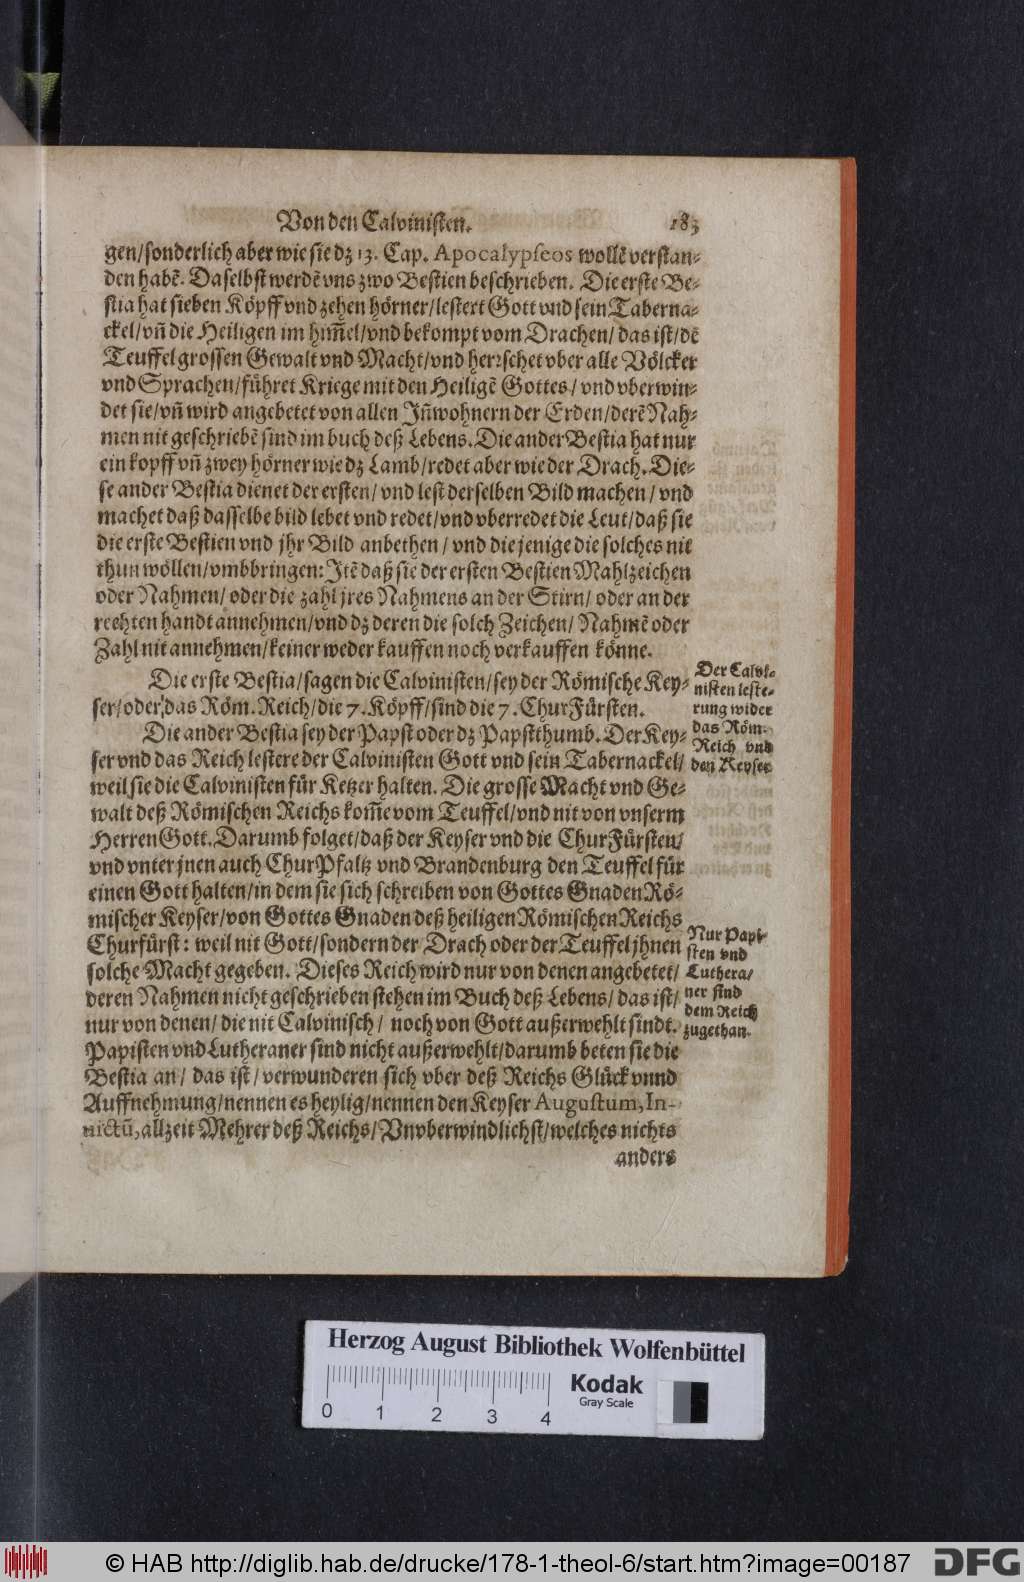 Von den Calvinisten. 183
gen/sonderlich aber wie sie dz 13. Cap. Apocalypſeos wollē verstan-
den habē. Daselbst werdē vns zwo Bestien beschrieben. Die erste Be-
stia hat sieben Köpff vnd zehen hörner/lestert Gott vnd sein Taberna-
ckel/vn̄ die Heiligen im him̄el/vnd bekompt vom Drachen/das ist/dē
Teuffel grossen Gewalt vnd Macht/vnd herrschet vber alle Völcker
vnd Sprachen/führet Kriege mit den Heiligē Gottes/vnd vberwin-
det sie/vn̄ wird angebetet von allen Jn̄wohnern der Erden/derē Nah-
men nit geschriebē sind im buch deß Lebens. Die ander Bestia hat nur
ein kopff vn̄ zwey hörner wie dz Lamb/redet aber wie der Drach. Die-
se ander Bestia dienet der ersten/vnd lest derselben Bild machen/vnd
machet daß dasselbe bild lebet vnd redet/vnd vberredet die Leut/daß sie
die erste Bestien vnd jhr Bild anbethen/vnd die jenige die solches nit
thun wöllen/vmbbringen: Jtē daß sie der ersten Bestien Mahlzeichen
oder Nahmen/oder die zahl jres Nahmens an der Stirn/oder an der
rechten handt annehmen/vnd dz deren die solch Zeichen/Nahmē oder
Zahl nit annehmen/keiner weder kauffen noch verkauffen könne.
Die erste Bestia/sagen die Calvinisten/sey der Römische Key-
ser/oder das Röm. Reich/die 7. Köpff/sind die 7. ChurFürsten.
Der Calvi-
nisten leste-
rung wider
das Röm.
Reich vnd
den Keyser
Die ander Bestia sey der Papst oder dz Papstthumb. Der Key-
ser vnd das Reich lestere der Calvinisten Gott vnd sein Tabernackel/
weil sie die Calvinisten für Ketzer halten. Die grosse Macht vnd Ge-
walt deß Römischen Reichs kom̄e vom Teuffel/vnd nit von vnserm
HerrenGott. Darumb folget/daß der Keyser vnd die ChurFürsten/
vnd vnter jnen auch ChurPfaltz vnd Brandenburg den Teuffel für
einen Gott halten/in dem sie sich schreiben von Gottes Gnaden Rö-
mischer Keyser/von Gottes Gnaden deß heiligen Römischen Reichs
Churfürst: weil nit Gott/sondern der Drach oder der Teuffel jhnen
solche Macht gegeben. Dieses Reich wird nur von denen angebetet/
deren Nahmen nicht geschrieben stehen im Buch deß Lebens/das ist/
nur von denen/die nit Calvinisch/noch von Gott außerwehlt sindt.
Papisten vnd Lutheraner sind nicht außerwehlt/darumb beten sie die
Bestia an/das ist/verwunderen sich vber deß Reichs Glück vnnd
Auffnehmung/nennen es heylig/nennen den Keyser Augustum, In-
uictū, allzeit Mehrer deß Reichs/Vnvberwindlichst/welches nichts
anders
Nur Papi-
sten vnd
Luthera/
ner sind
dem Reich
zugethan.
Herzog August Bibliothek Wolfenbüttel
0 1 2 3 4
Kodak
Gray Scale
© HAB http://diglib.hab.de/drucke/178-1-theol-6/start.htm?image=00187
DFG